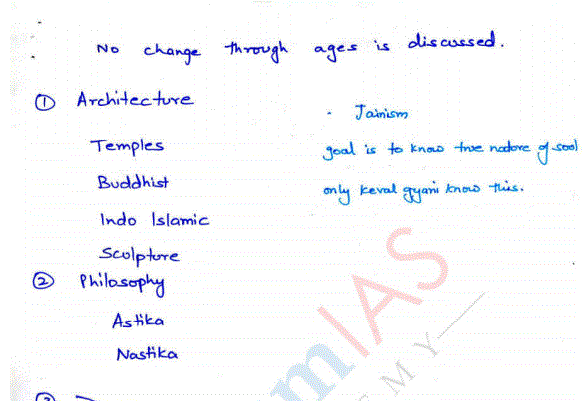 No change through ages is discussed.
① Architecture
Temples
Buddhist
Indo Islamic
Sculpture
② Philosophy
Astika
Nastika
- Jainism
goal is to know true nature of soul
only keval gyani know this.
mIAS
EMY